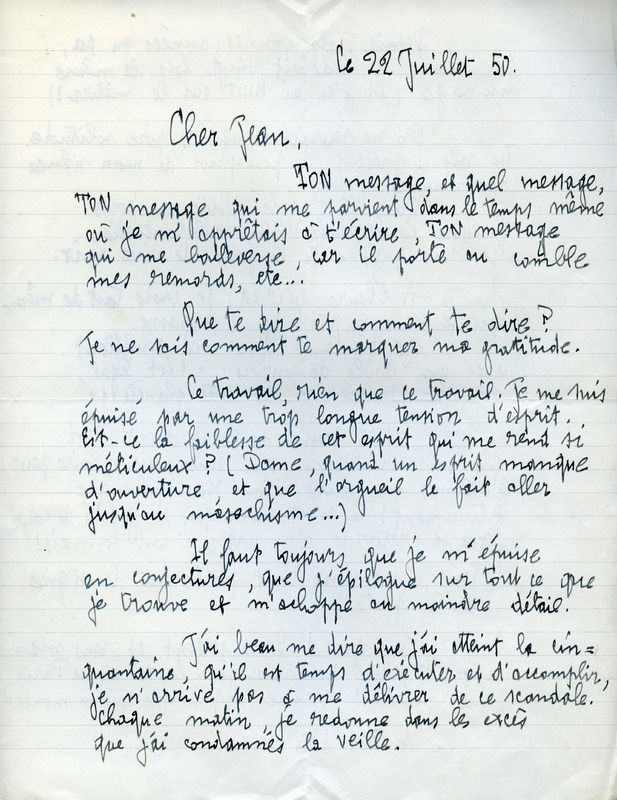 Le 22 Juillet 50.
Cher Jean,
TON message, et quel message,
TON message qui me parvient dans le temps même
où je m'apprêtais à t'écrire, TON message
qui me bouleverse, car il porte au comble
mes remords, etc...
Que te dire et comment te dire ?
Je ne sais comment te marquer ma gratitude.
Ce travail, rien que ce travail. Je me suis
épuisé par une trop longue tension d'esprit.
Est-ce la faiblesse de cet esprit qui me rend si
méticuleux ? (Dame, quand un esprit manque
d'ouverture, et que l'orgueil le fait aller
jusqu'au masochisme...)
Il faut toujours que je m'épuise
en conjectures, que j'épilogue sur tout ce que
je trouve et m'achoppe au moindre détail.
J'ai beau me dire que j'ai atteint la cin=
quantaine, qu'il est temps d'exécuter et d'accomplir,
je n'arrive pas à me délivrer de ce scandale.
Chaque matin, je redonne dans les excès
que j'ai condamnés la veille.